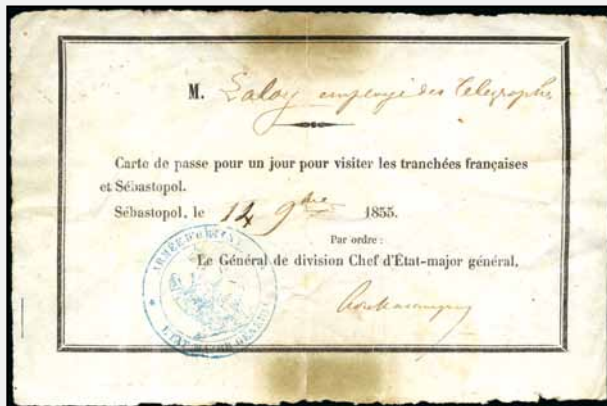 M. Saloy employé des Télégraphes
Carte de passe pour un jour pour visiter les tranchées françaises
et Sébastopol.
Sébastopol, le 14 9bre 1855.
Par ordre :
Le Général de division Chef d'État-major général,
ARMÉE D'ORIENT
ÉTAT MAJOR GÉNÉRAL